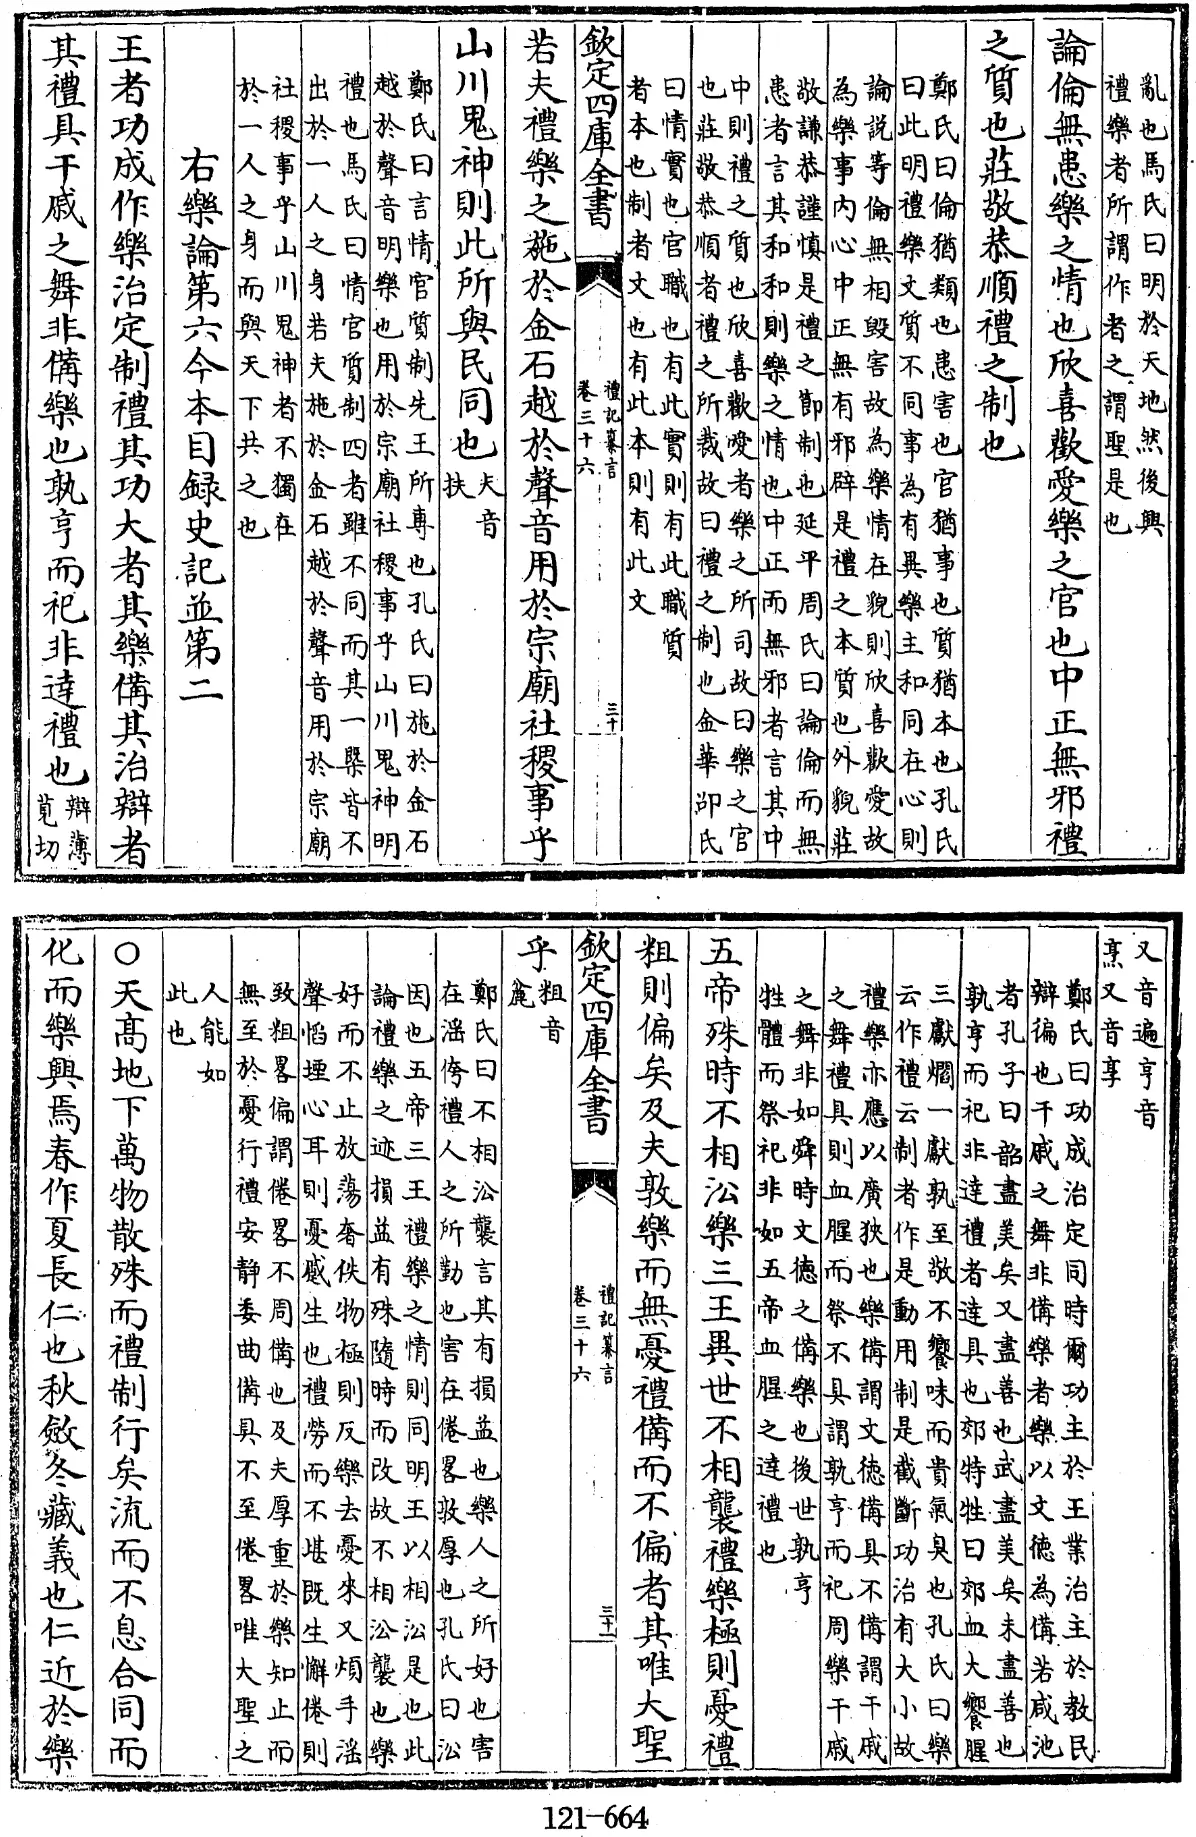 亂也馬氏曰明於天地然後興
禮樂者所謂作者之謂聖是也
論倫無患樂之情也欣喜歡愛樂之官也中正無邪禮
之質也莊敬恭順禮之制也
鄭氏曰倫猶類也患害也官猶事也質猶本也孔氏
曰此明禮樂文質不同事為有異樂主和同在心則
論說等倫無相毀害故為樂情在貌則欣喜歡愛故
為樂事內心中正無有邪辟是禮之本質也外貌莊
敬謙恭謹慎是禮之節制也延平周氏曰論倫而無
患者言其和和則樂之情也中正而無邪者言其中
中則禮之質也欣喜歡愛者樂之所司故曰樂之官
也莊敬恭順者禮之所裁故曰禮之制也金華邵氏
曰情實也官職也有此實則有此職質
者本也制者文也有此本則有此文
欽定四庫全書
禮記纂言
卷三十六
三十
若夫禮樂之施於金石越於聲音用於宗廟社稷事乎
山川鬼神則此所與民同也
夫音
扶
鄭氏曰言情官質制先王所專也孔氏曰施於金石
越於聲音明樂也用於宗廟社稷事乎山川鬼神明
禮也馬氏曰情官質制四者雖不同而其一槩皆不
出於一人之身若夫施於金石越於聲音用於宗廟
社稷事乎山川鬼神者不獨在
於一人之身而與天下共之也
右樂論第六今本目録史記並第二
王者功成作樂治定制禮其功大者其樂備其治辯者
其禮具干戚之舞非備樂也孰亨而祀非達禮也
辯薄
莧切
又音遍亨音
烹又音享
鄭氏曰功成治定同時爾功主於王業治主於教民
辯徧也干戚之舞非備樂者樂以文德為備若咸池
者孔子曰韶盡美矣又盡善也武盡美矣未盡善也
孰亨而祀非達禮者達具也郊特牲曰郊血大饗腥
三獻爓一獻孰至敬不饗味而貴氣臭也孔氏曰樂
云作禮云制者作是動用制是裁斷功治有大小故
禮樂亦應以廣狹也樂備謂文德備具不備謂干戚
之舞禮具則血腥而祭不具謂孰亨而祀周樂干戚
之舞非如舜時文德之備樂也後世孰亨
牲體而祭祀非如五帝血腥之達禮也
五帝殊時不相沿樂三王異世不相襲禮樂極則憂禮
粗則偏矣及夫敦樂而無憂禮備而不偏者其唯大聖
欽定四庫全書
禮記纂言
卷三十六
三十一
乎
粗音
麄
鄭氏曰不相沿襲言其有損益也樂人之所好也害
在滛侉禮人之所勤也害在倦畧敦厚也孔氏曰沿
因也五帝三王禮樂之情則同明王以相沿是也此
論禮樂之迹損益有殊隨時而改故不相沿襲也樂
好而不止放蕩奢佚物極則反樂去憂來又煩手滛
聲慆堙心耳則憂慼生也禮勞而不堪既生懈倦則
致粗畧偏謂倦畧不周備也及夫厚重於樂知止而
無至於憂行禮安靜委曲備具不至倦畧唯大聖之
人能如
此也
○天髙地下萬物散殊而禮制行矣流而不息合同而
化而樂興焉春作夏長仁也秋斂冬藏義也仁近於樂
121-664